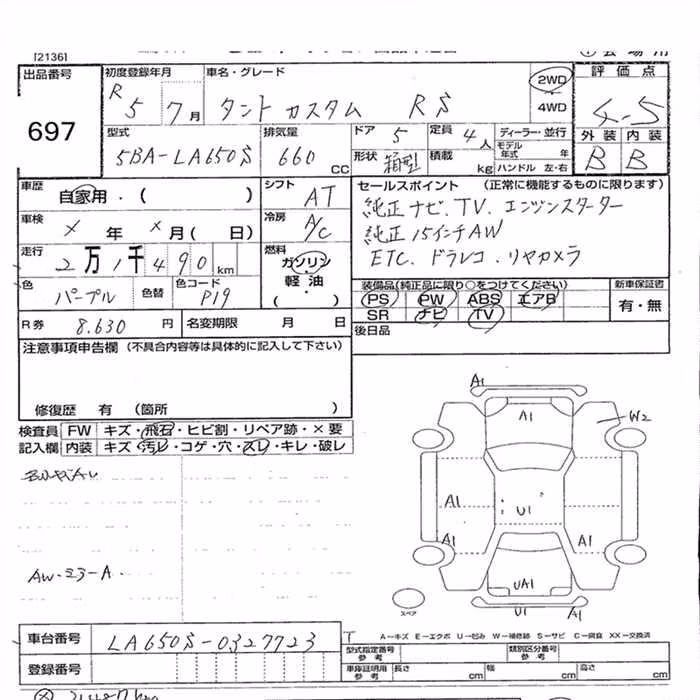 [2136]
出品番号 初度登録年月 車名・グレード 2WD 評価点
R 5 7月 タント カスタム RS 4WD 4.5
697 型式 排気量 ドア 5 定員 4人 ディーラー・並行 外装 内装
5BA-LA650S 660 CC 形状 箱型 積載 kg モデル年式 年 ハンドル 左・右 B B
車歴 自家用・( ) シフト AT セールスポイント (正常に機能するものに限ります)
車検 × 年 × 月( 日) 冷房 A/C 純正ナビ.TV. エンジンスターター
純正15インチAW
走行 2万1千490km 燃料 ガソリン ETC. ドラレコ.リヤカメラ
軽油
色 パープル 色替 色コード P19 ( ) 装備品(純正品に限り○をつけてください) 新車保証書
PS PW ABS エアB 有・無
R券 8.630円 名変期限 月 日 SR ナビ TV
注意事項申告欄 (不具合内容等は具体的に記入して下さい) 後日品
修復歴 有 (箇所 )
検査員 FW キズ・飛石・ヒビ割・リペア跡・×要
記入欄 内装 キズ・汚レ・コゲ・穴・スレ・キレ・破レ
A1
A1 W2
A1 U1
A1 A1
AW-ヨゴ-A.
UA1
スペア U1 A1
A-キズ E-エクボ U-凹み W-補修跡 S-サビ C-腐食 XX-交換済
車台番号 LA650S-0327723 型式指定番号 参考 類別区分番号 参考
登録番号 車庫証明用 参考 長さ cm 幅 cm 高さ cm